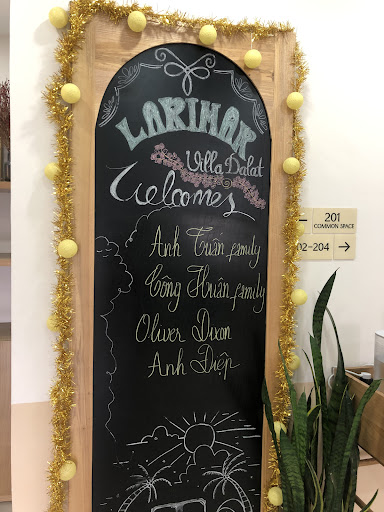 LARIMAR
Villa Dalat
Welcomes
Anh Tuấn family
Công Huân family
Oliver Dixon
Anh Điệp
201
COMMON SPACE
02-204 →